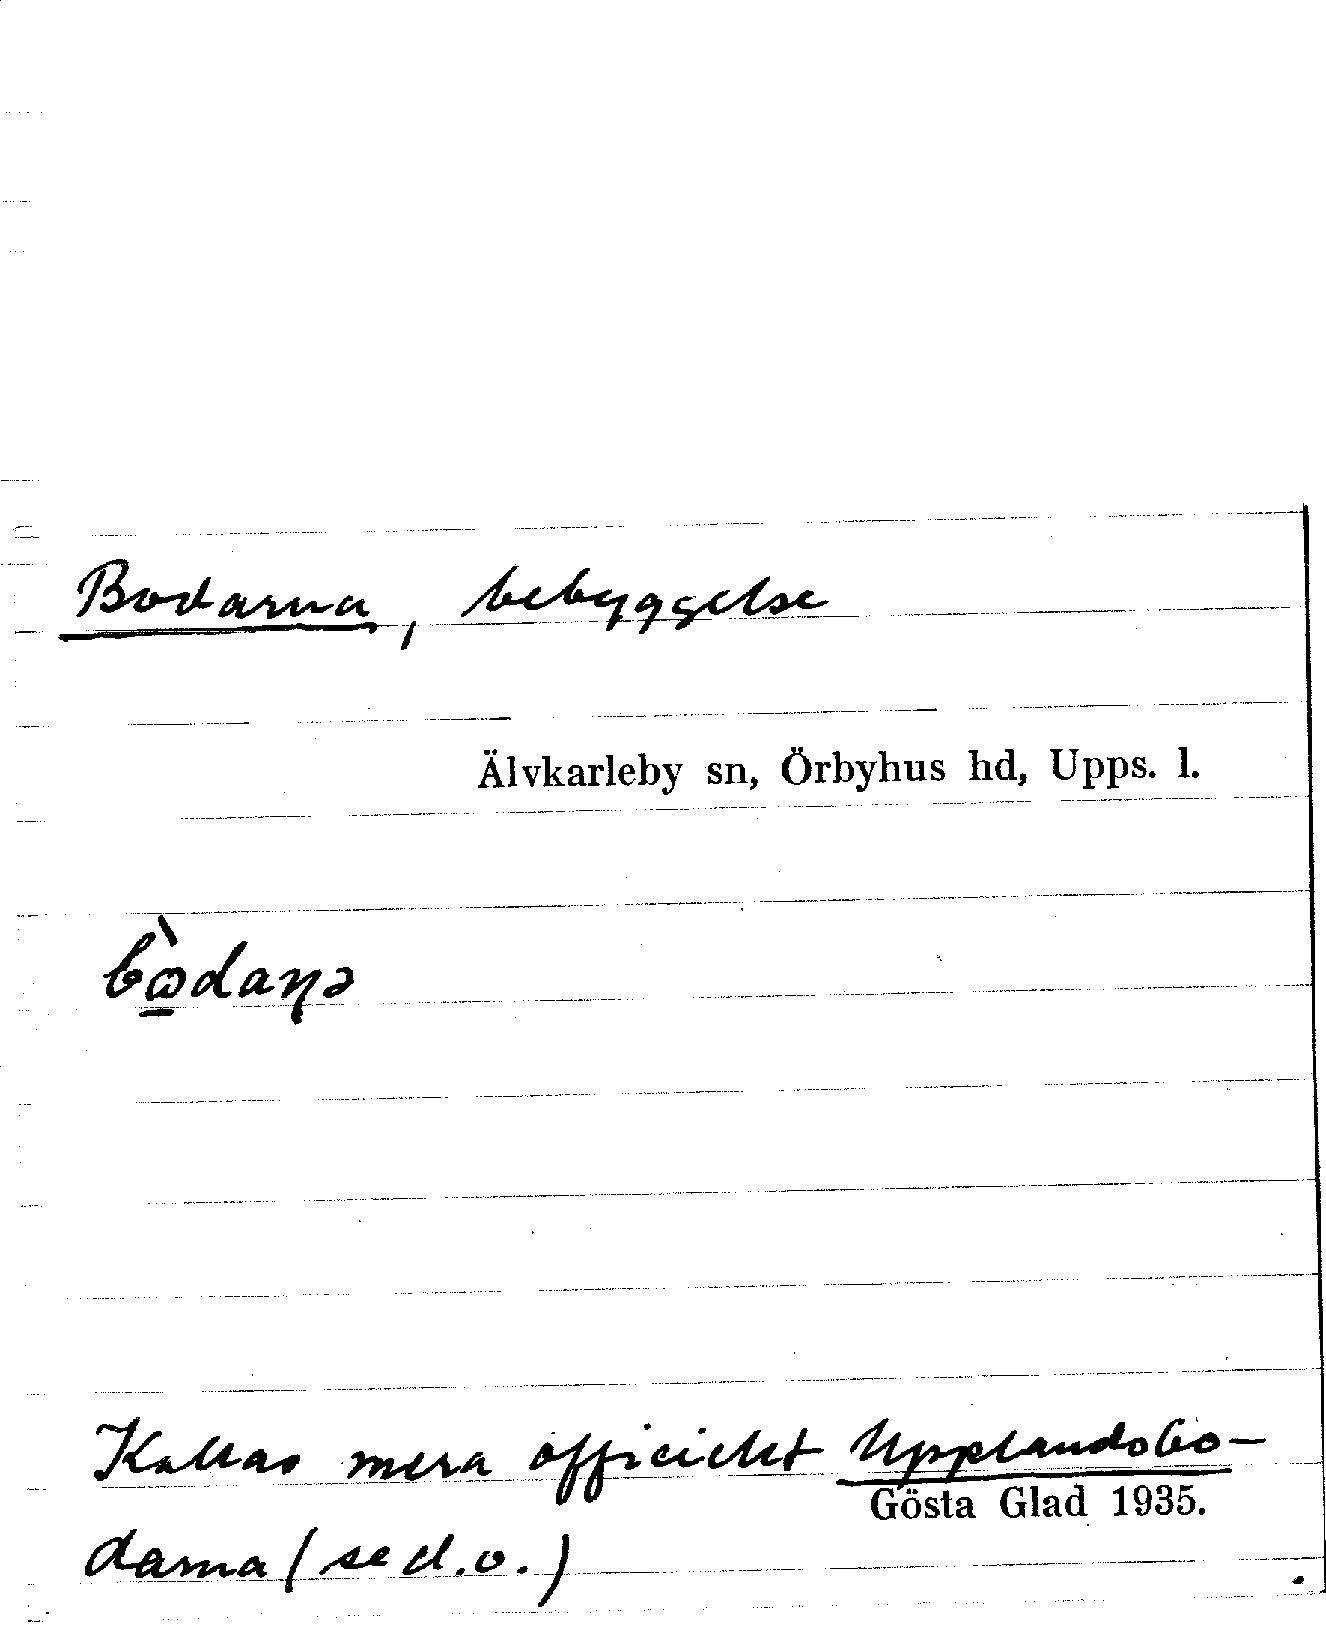 Bodarna, bebyggelse
Älvkarleby sn, Örbyhus hd, Upps. l.
bὼ̲daɳə
Kallas mera officiellt Upplandsbo-
Gösta Glad 1935.
darna (se d.o.)